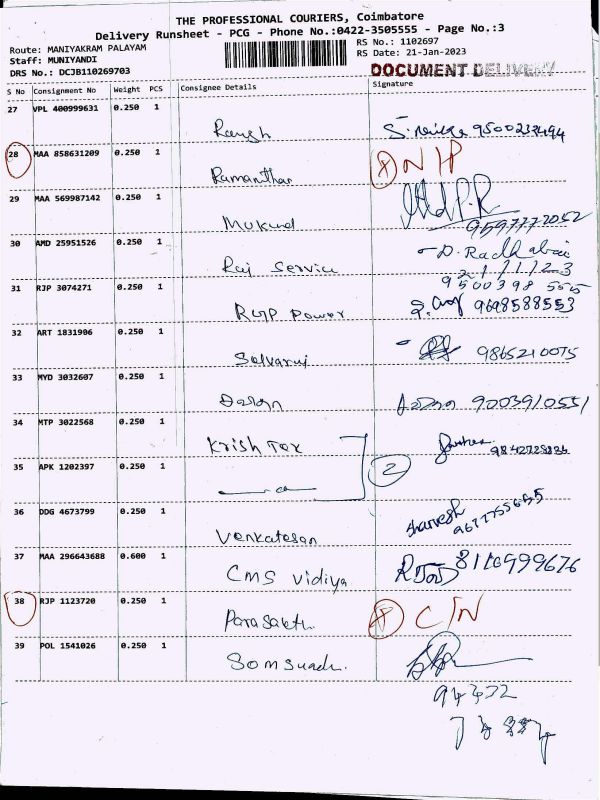 THE PROFESSIONAL COURIERS, Coimbatore
Delivery Runsheet - PCG - Phone No.:0422-3505555 - Page No.:3
Route: MANIYAKRAM PALAYAM
RS No.: 1102697
Staff: MUNIYANDI
RS Date: 21-Jan-2023
DRS No.: DCJB110269703
DOCUMENT DELIVERY
S No Consignment No Weight PCS Consignee Details Signature
27 VPL 400999631 0.250 1
Ramesh 9500233494
28 MAA 858631209 0.250 1
Ramanathan N/P
29 MAA 569987142 0.250 1
P.R
Mukund 9597772052
30 AMD 25951526 0.250 1
D. Radhabai
Raj Service 21/1/23
31 RJP 3074271 0.250 1
9500398 5515
RUP Power 9698588553
32 ART 1831906 0.250 1
Selvaraj 9865210075
33 MYD 3032607 0.250 1
9003910551
34 MTP 3022568 0.250 1
Krish Tex
35 APK 1202397 0.250 1
2
36 DDG 4673799 0.250 1
Sharvesh
Venkatesan
37 MAA 296643688 0.600 1
CMS Vidiya 8110999676
38 RJP 1123720 0.250 1
Parasakthi C/N
39 POL 1541026 0.250 1
94432